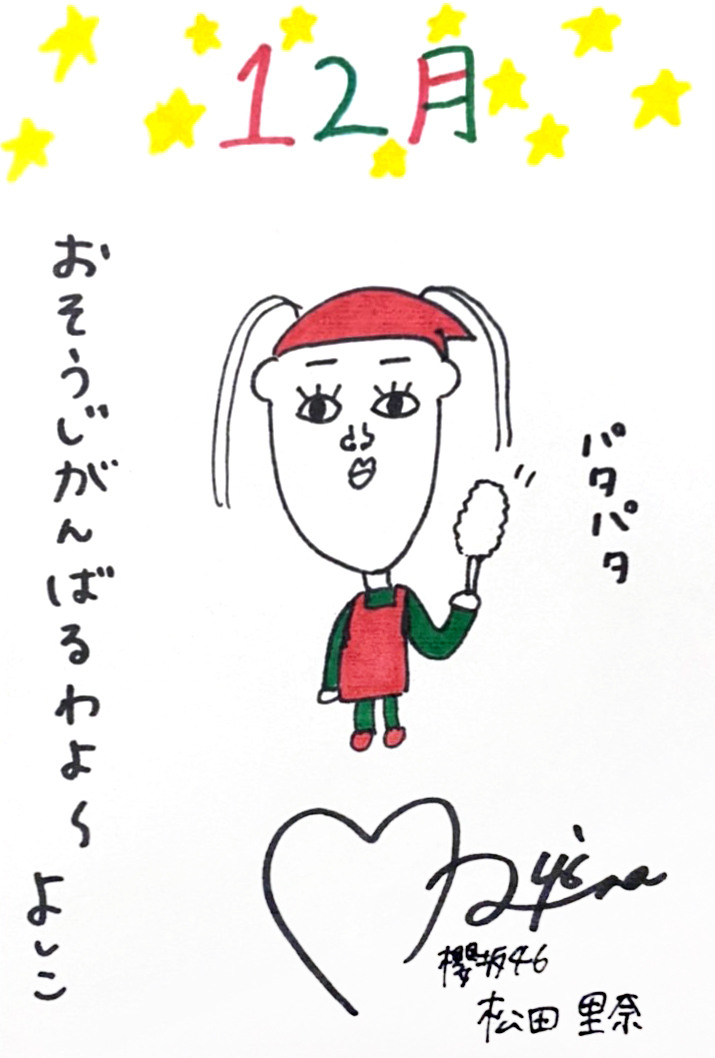 12月
おそうじがんばるわよ〜
よしこ
パタパタ
Rina
櫻坂46
松田 里奈